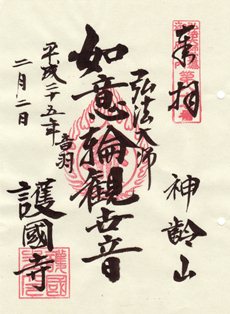 奉拝
神齢山
弘法大師
如意輪観世音
音羽
護國寺
平成二十五年
二月二日